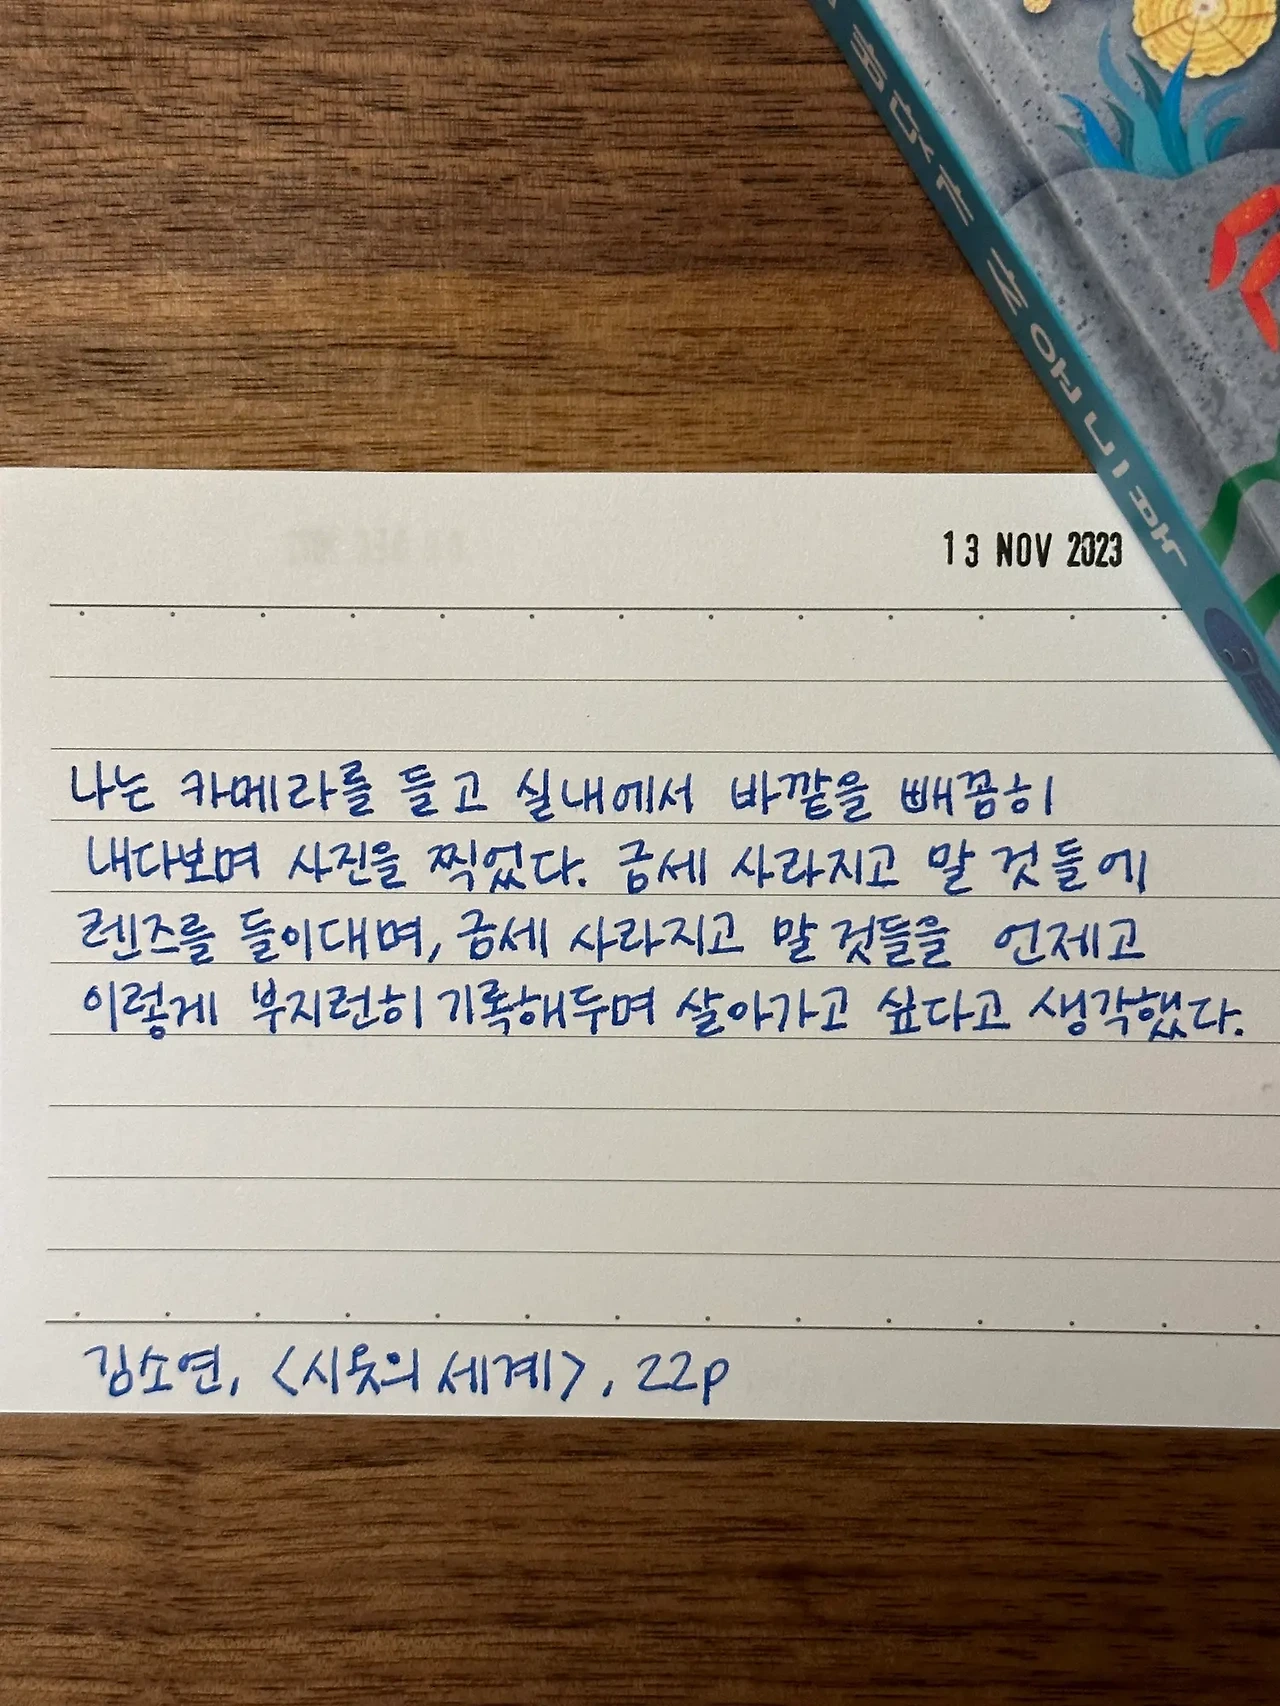 13 NOV 2023
나는 카메라를 들고 실내에서 바깥을 빼꼼히
내다보며 사진을 찍었다. 금세 사라지고 말 것들에
렌즈를 들이대며, 금세 사라지고 말 것들을 언제고
이렇게 부지런히 기록해두며 살아가고 싶다고 생각했다.
김소연, <시옷의 세계>, 22p